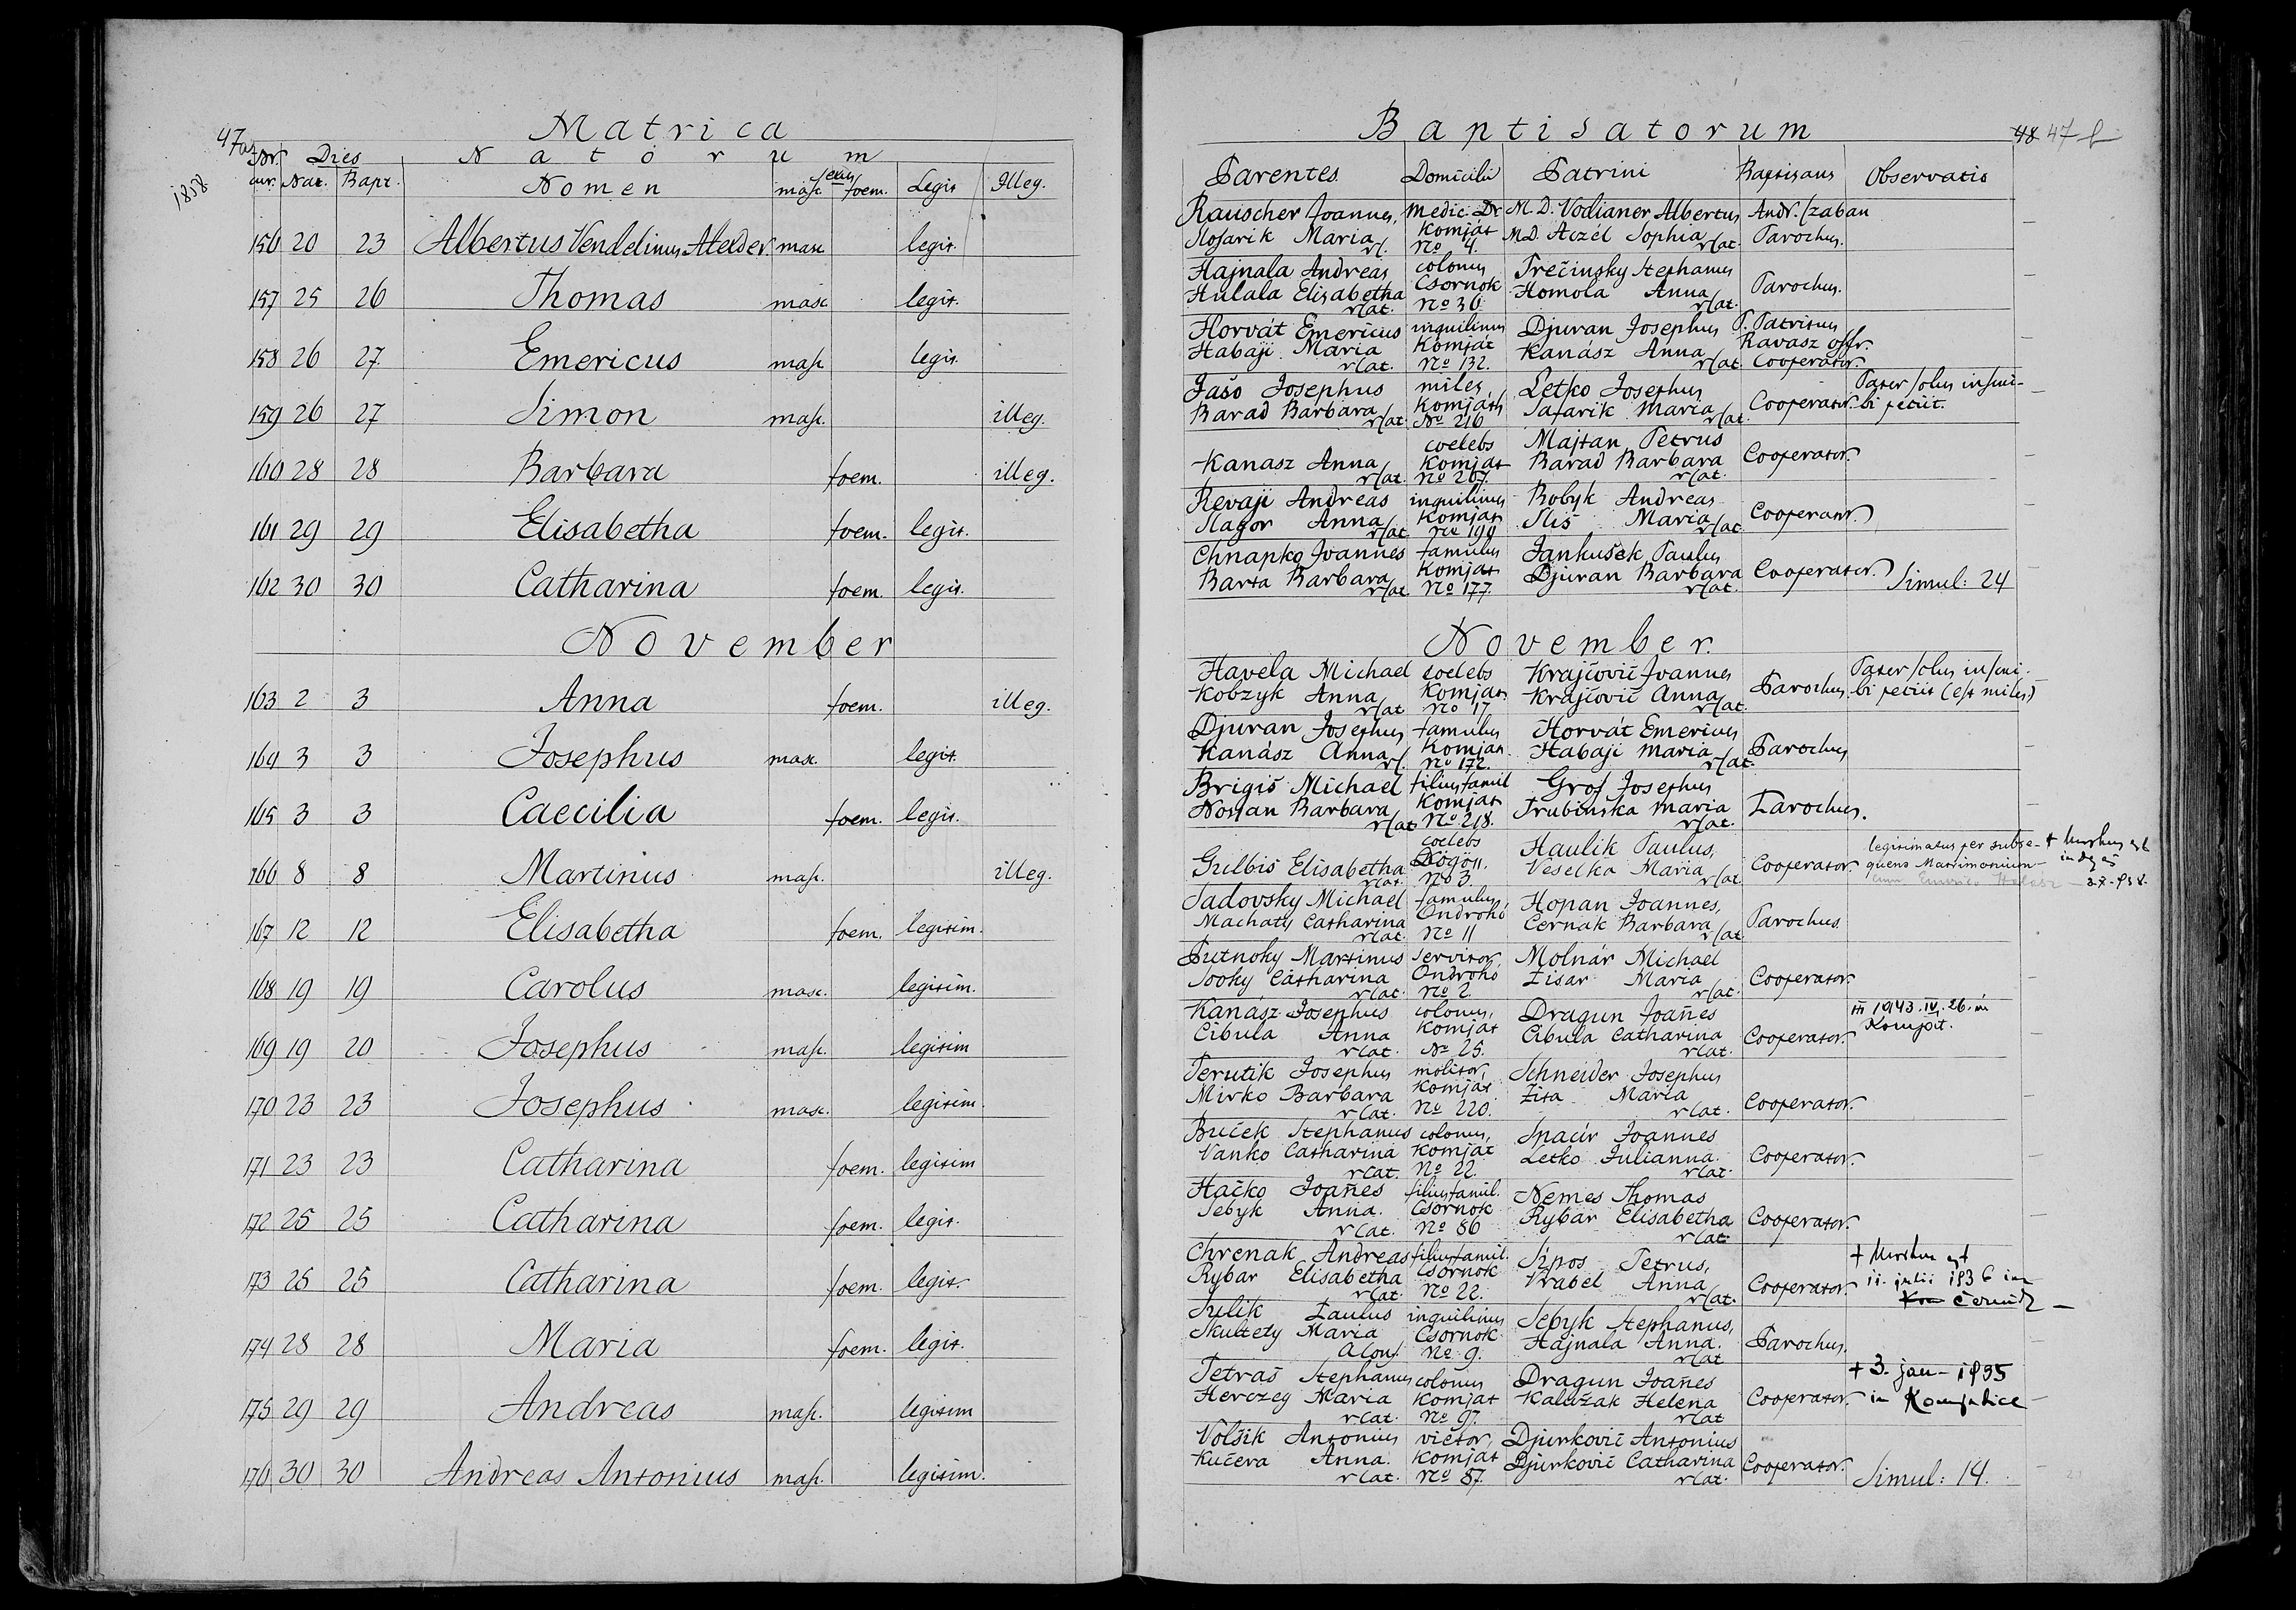 47a
1858
Matrica
Nr. Dies Natorum
cur. Nat. Bapt. Nomen sexus masc. foem. Legit Illeg.
156 20 23 Albertus Vendelinus masc legit.
157 25 26 Thomas masc legit.
158 26 27 Emericus masc. legit.
159 26 27 Simon masc. illeg.
160 28 28 Barbara foem. illeg.
161 29 29 Elisabetha foem. legit.
162 30 30 Catharina foem. legit.
November
163 2 3 Anna foem. illeg.
164 3 3 Josephus masc. legit.
165 3 3 Caecilia foem. legit.
166 8 8 Martinus masc. illeg.
167 12 12 Elisabetha foem. legitim.
168 19 19 Carolus masc. legitim.
169 19 20 Josephus masc. legitim
170 23 23 Josephus masc. legitim.
171 23 23 Catharina foem. legitim
172 25 25 Catharina foem. legit.
173 25 25 Catharina foem. legit.
174 28 28 Maria foem. legit.
175 29 29 Andreas masc. legitim
176 30 30 Andreas Antonius masc. legitim.
Baptisatorum
48 47
Parentes Domicilii Patrini Baptisans Observatio
Rauscher Joannes, Medic. Dr M. D. Vodianer Albertus Andr. Szaban
Maria Komját M.D. Aczél Sophia Parochus.
r. No 4. rcat.
Hajnala Andreas colonus Trečinsky Stephanus
Hulala Elisabetha Csornok Homola Anna Parochus.
rcat. No 36. rcat.
Horvát Emericus inquilinus Djuran Josephus P. Patritius
Habaji Maria Komját Kanász Anna Kavasz
rcat. No 132. rcat. Cooperator.
Jašo Josephus miles Letko Josephus Pater solus inscri-
Barad Barbara Komját Safarik Maria Cooperator. bi petiit.
rcat. No 216 rcat.
coelebs Majtan Petrus
Kanasz Anna Komjat Barad Barbara Cooperator.
rcat. No 207. rcat.
Revaji Andreas inquilinus Bobyk Andreas
Anna Komjat Maria Cooperator.
rcat. No 199 rcat
Chnapko Joannes famulus Jankušek Paulus
Barta Barbara Komjat Djuran Barbara Cooperator.
rcat. No 177. rcat. Simul: 24
November.
Havela Michael coelebs Krajčovič Joannes Pater solus inscri-
Kobzyk Anna Komjat Krajčovič Anna Parochus bi petiit (est miles)
rcat No 17 rcat.
Djuran Josephus famulus Horvát Emericus
Kanász Anna Komjat. Habaji Maria Parochus
No 172. rcat.
Brigiš Michael filiusfamil Grof Josephus
Barbara Komjat Trubinska Maria Parochus.
rcat No 218. rcat.
coelebs Haulik Paulus,
Gulbiš Elisabetha Dögös. Veselka Maria Cooperator
rcat. No 3. rcat.
legitimatus per subse-
quens Matrimonium
Sadovsky Michael famulus, Hopan Joannes,
Machaty Catharina Ondrohó Černak Barbara Parochus.
rcat. No 11 rcat.
Putnoky Martinus servitor Molnár Michael
Sooky Catharina Ondrohó Maria Cooperator.
rcat. No 2. rcat.
Kanász Josephus colonus, Dragun Joañes 1943. IV. 26. in
Cibula Anna Komjat Cibula Catharina Cooperator. Komját.
rcat. No 25. rcat.
Perutik Josephus molitor, Schneider Josephus
Mirko Barbara Komjat Zita Maria Cooperator.
rcat. No 220. rcat.
Buček Stephanus colonus, Spacír Joannes
Vanko Catharina Komját Letko Julianna. Cooperator.
rcat. No 22. rcat.
Hačko Joañes filiusfamil. Nemes Thomas
Sebyk Anna. Csornok Rybar Elisabetha Cooperator.
rcat. No 86 rcat.
Chrenak Andreas filiusfamil. Sípos Petrus,
Rybar Elisabetha Csornok Vrabel Anna Cooperator.
rcat. No 22. rcat.
11. julii 1936 in
Sulik Paulus inquilinus Sebyk Stephanus,
Skultety Maria Csornok Hajnala Anna. Parochus.
No 9. rcat
Petraš Stephanus colonus Dragun Joañes + 3. jan- 1935
Herczeg Maria Komjat Kalužak Helena Cooperator. in Komjatice
rcat. No 97. rcat
Volšik Antonius vietor, Djurkovič Antonius
Kučera Anna. Komjat Djurkovič Catharina Cooperator.
rcat. No 87. rcat. Simul: 14.